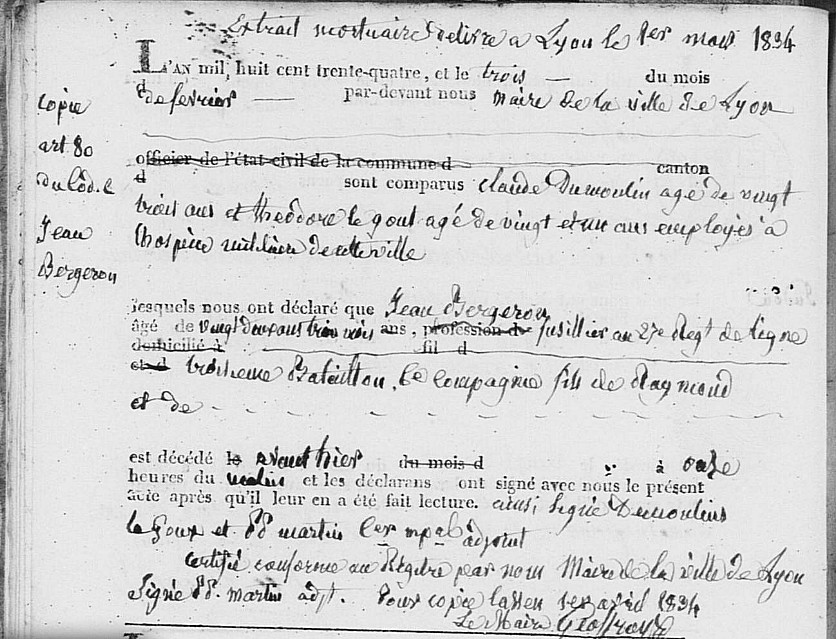 Extrait mortuaire delivré a Lyon le 1er mars 1834
L'AN mil huit cent trente-quatre, et le trois du mois
d de fevrier par-devant nous maire de la ville de Lyon
officier de l'état civil de la commune d canton
d sont comparus Claude Dumoulin agé de vingt
trois ans et theodore le gout agé de vingt et un ans employés à
l'hospice militaire de cette ville
copie
art 80
du Cod. C
Jean
Bergeron
lesquels nous ont déclaré que Jean Bergeron
âgé de vingt deux ans trois mois ans, profession de fusillier au 27e Regt de ligne
domicilié à fil d
et d troisieme Bataillon, 6e compagnie fils de Raymond
et de
est décédé le avant hier du mois d à onze
heures du matin et les déclarans ont signé avec nous le présent
acte après qu'il leur en a été fait lecture. ainsi signé Dumoulins
le Goux et martin adjoint
certifié conforme au Régitre par nous Maire de la ville de Lyon
Signé martin adjt. Pour copie 1er avril 1834
Le Maire